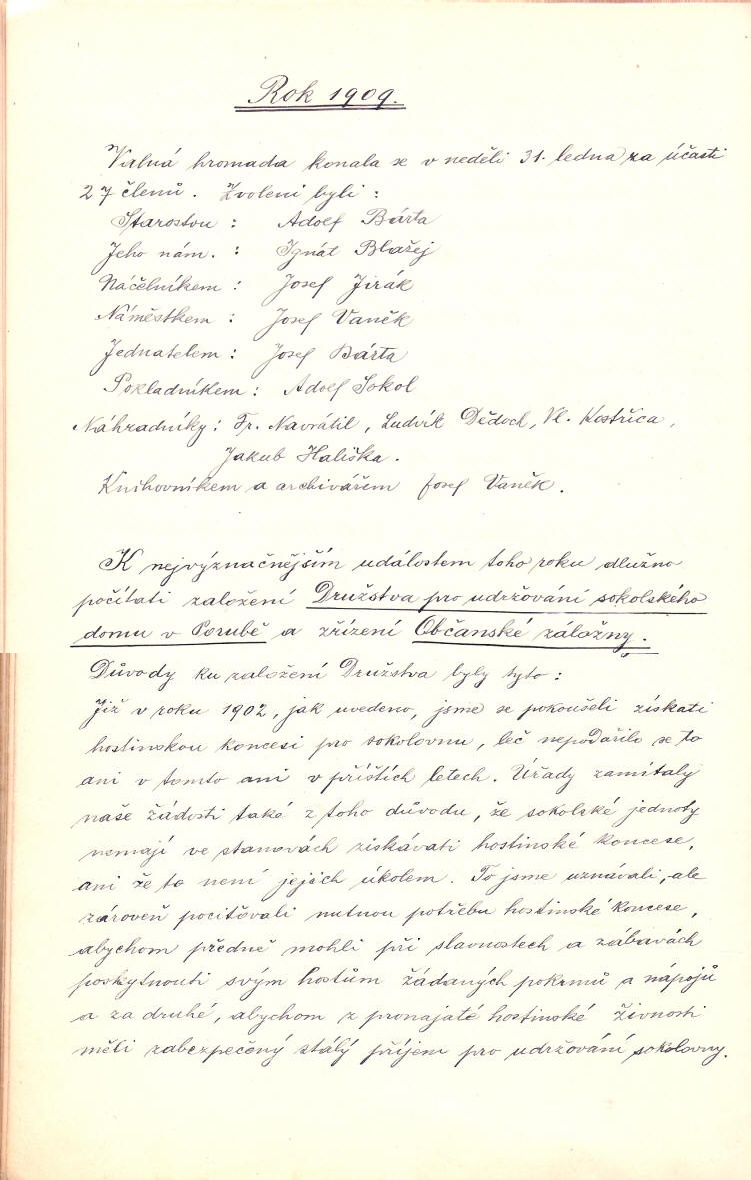 Rok 1909.
Valná hromada konala se v neděli 31. ledna za účasti
27 členů. Zvoleni byli :
Starostou : Adolf Bárta
Jeho nám. : Ignát Blažej
Náčelníkem : Josef Jirák
Náměstkem : Josef Vaněk
Jednatelem : Josef Bárta
Pokladníkem : Adolf Sokol
Náhradníky : Fr. Navrátil, Ludvík Dědoch, Vl. Kostřica,
Jakub Hališka.
Knihovníkem a archivářem Josef Vaněk.
K nejvýznačnějším událostem toho roku dlužno
počítati založení Družstva pro udržování sokolského
domu v Porubě a zřízení Občanské záložny.
Důvody ku založení Družstva byly tyto :
Již v roku 1902, jak uvedeno, jsme se pokoušeli získati
hostinskou koncesi pro sokolovnu, leč nepodařilo se to
ani v tomto ani v příštích letech. Úřady zamítaly
naše žádosti také z toho důvodu, že sokolské jednoty
nemají ve stanovách získávati hostinské koncese,
ani že to není jejich úkolem. To jsme uznávali, ale
zároveň pociťovali nutnou potřebu hostinské koncese,
abychom předně mohli při slavnostech a zábavách
poskytnouti svým hostům žádaných pokrmů a nápojů
a za druhé, abychom z pronajaté hostinské živnosti
měli zabezpečený stálý příjem pro udržování sokolovny.